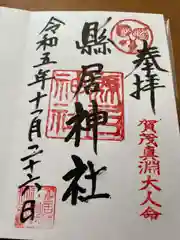 奉拝
賀茂真淵大人命
縣居神社
令和五年十一月二十六日